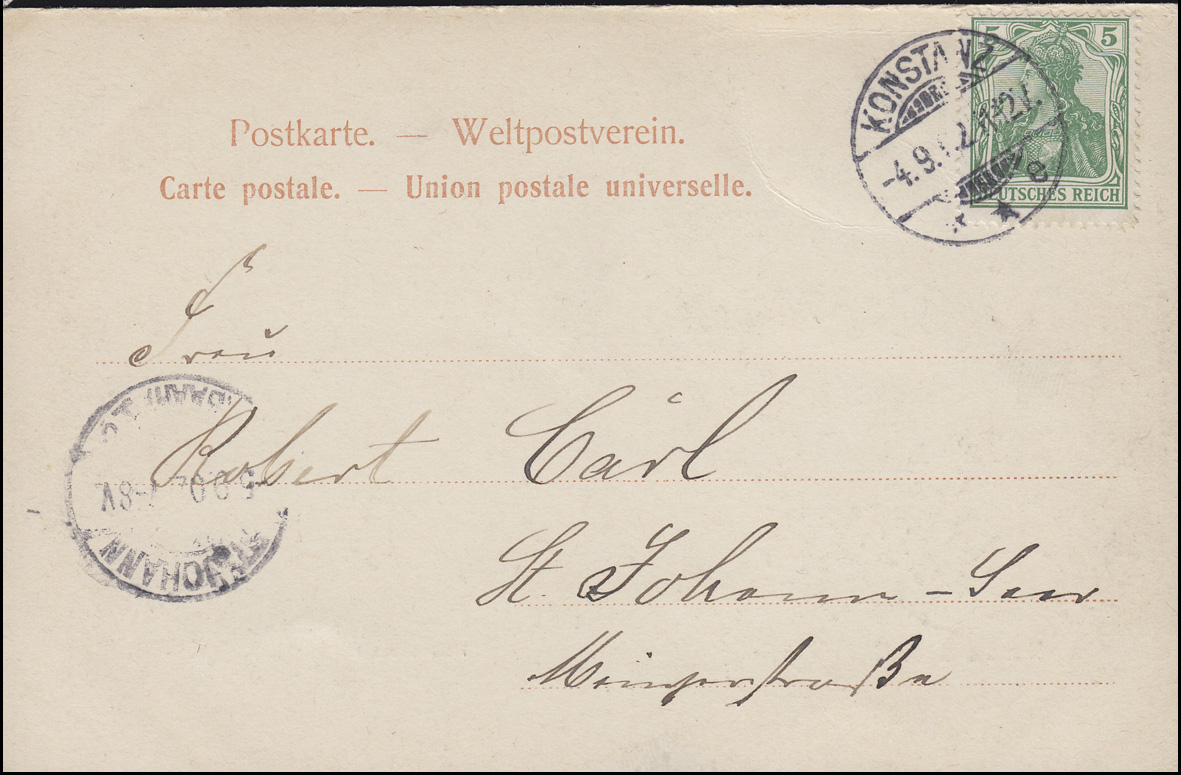 Postkarte. — Weltpostverein.
Carte postale. — Union postale universelle.
5 5
DEUTSCHES REICH
KONSTANZ
-4.9.
e
Frau
Robert Carl
St. Johann - Saar
ST. JOHANN